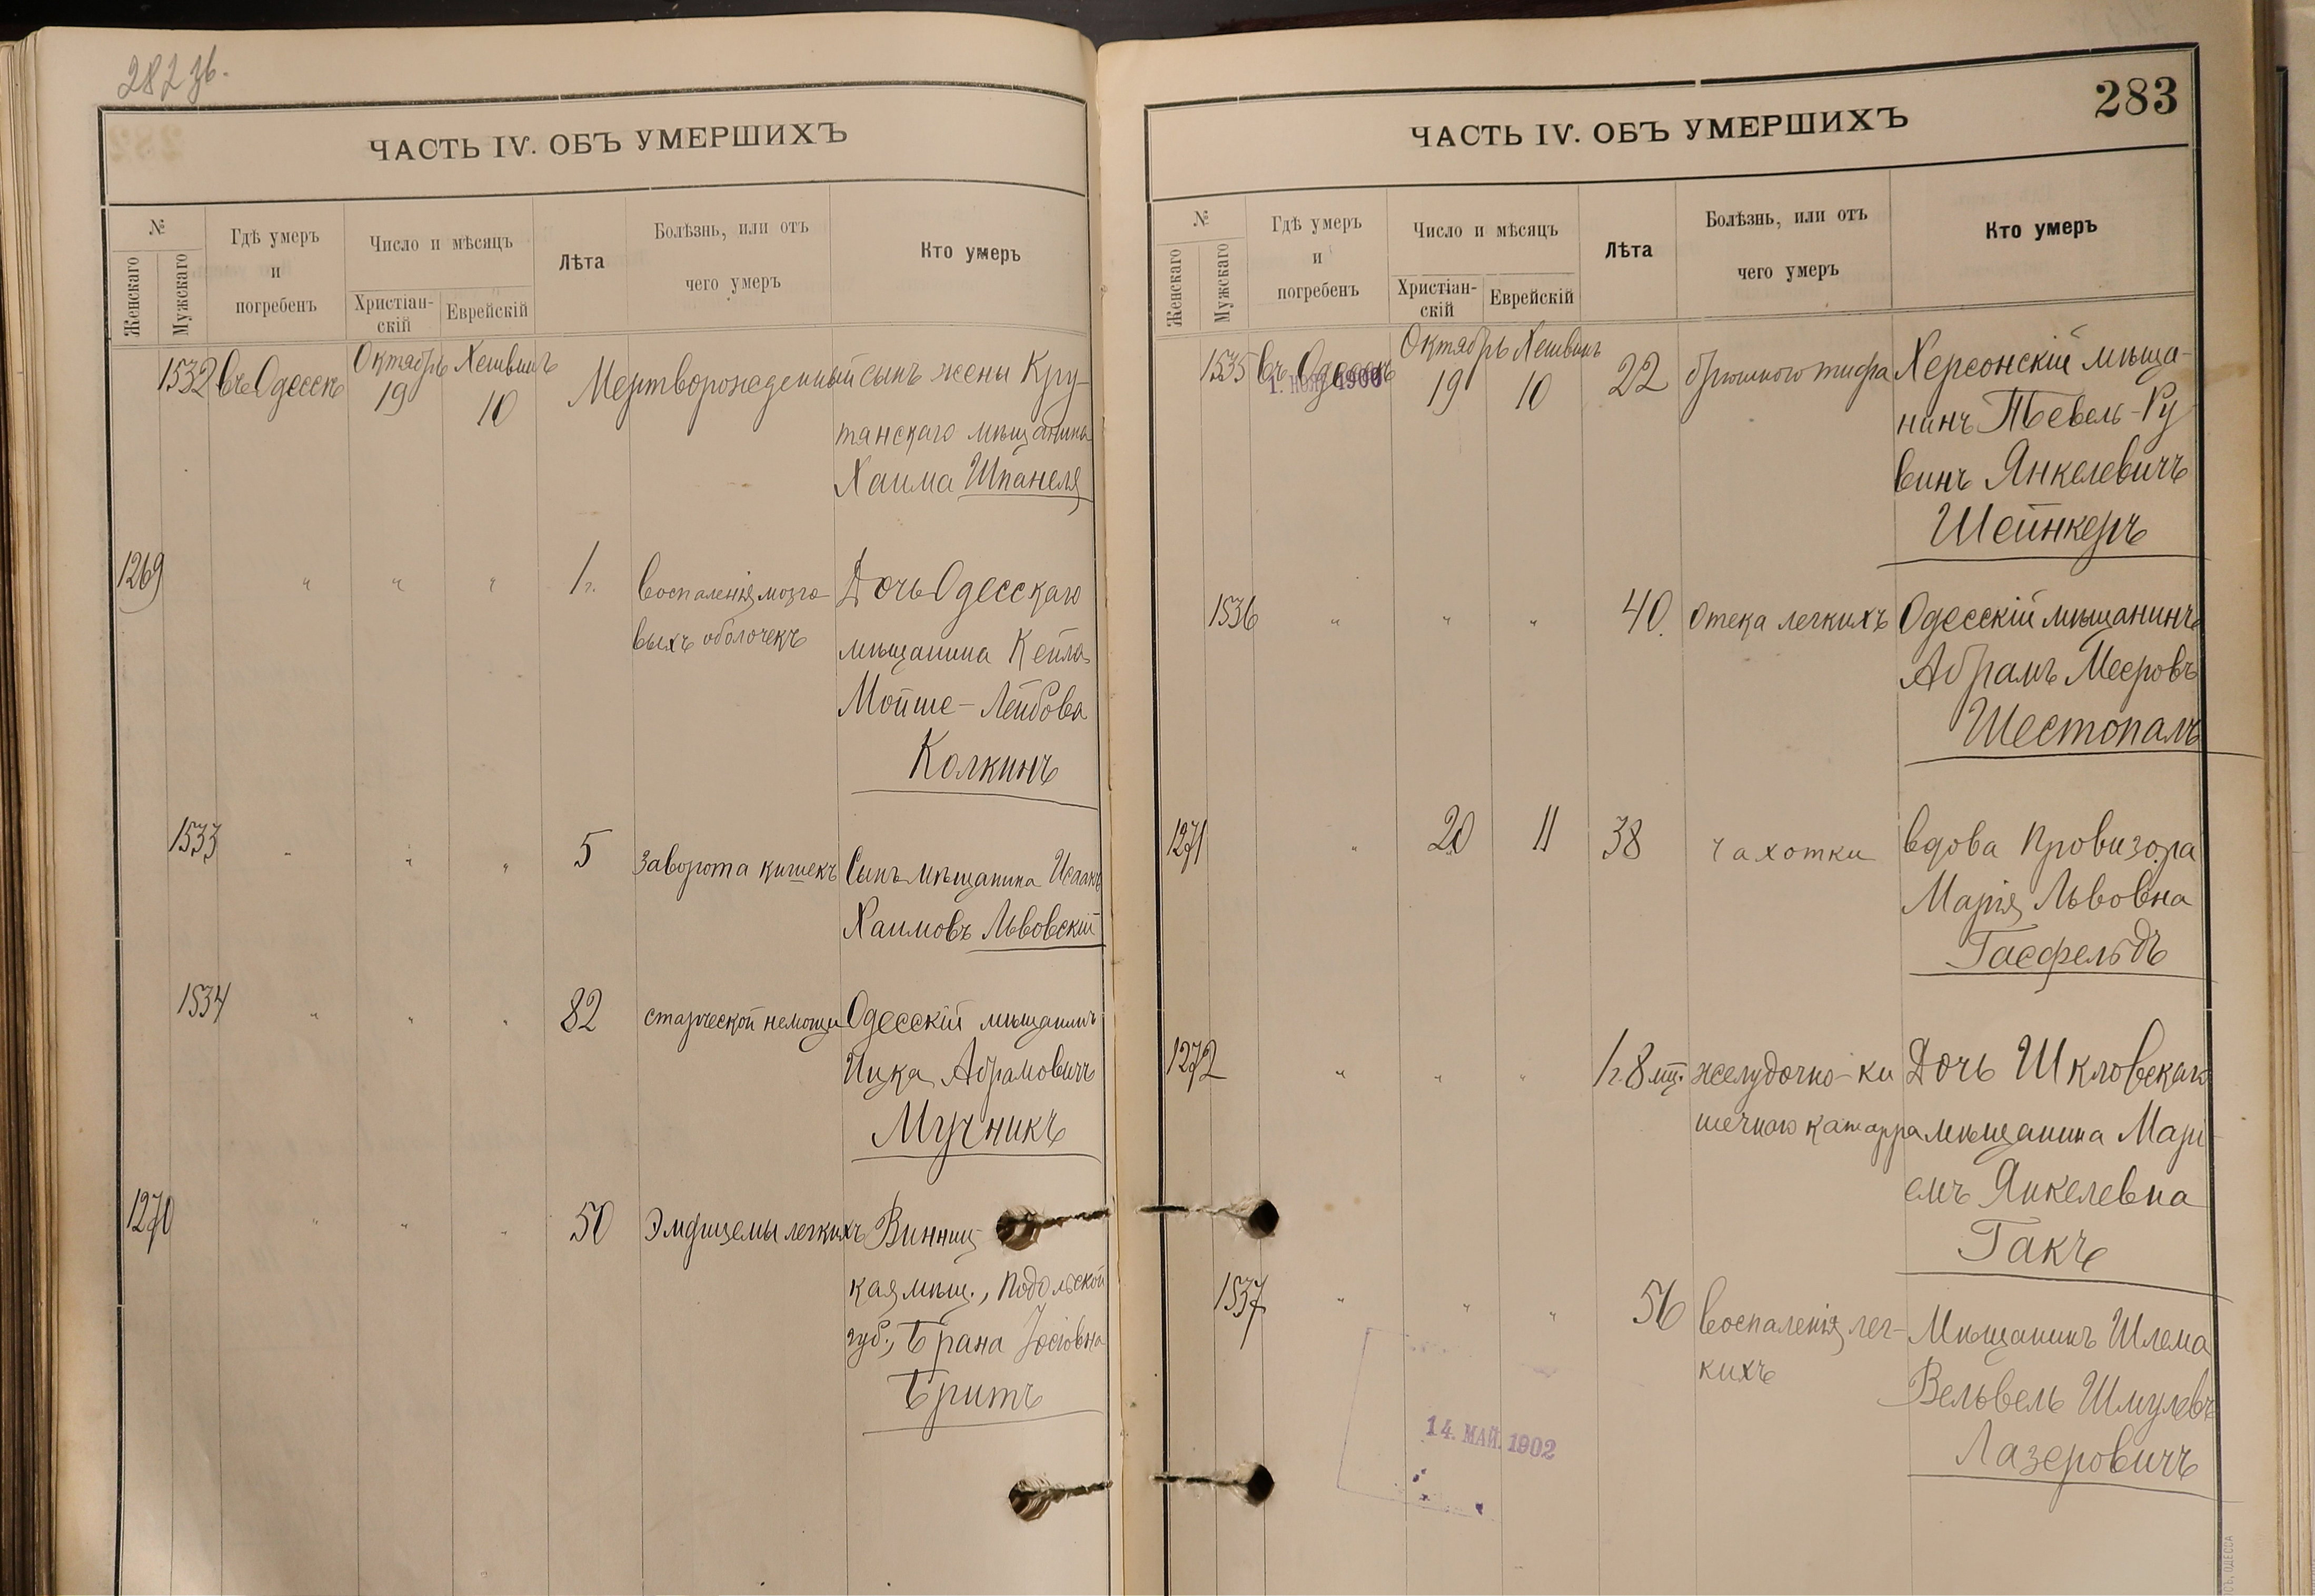 282 зв.
ЧАСТЬ IV. ОБЪ УМЕРШИХЪ
№
Женскаго
Мужскаго
Гдѣ умеръ
и
погребенъ
Число и мѣсяцъ
Христіан-
скій
Еврейскій
Лѣта
Болѣзнь, или отъ
чего умеръ
Кто умеръ
1532 въ Одессѣ Октябрь 19 Хешвинъ 10 Мертворожденный сынъ жены Кру-
тянскаго мѣщанина
Хаима Шпанеля
1269 " " " 1 г. воспаленія мозго- Дочь Одесскаго
выхъ оболочекъ мѣщанина Кейла
Мойше-Лейбова
Колкинъ
1533 " " " 5 Заворота кишекъ Сынъ мѣщанина Исаакъ
Хаимовъ Львовскій
1534 " " " 82 старческой немощи Одесскій мѣщанинъ
Ицка Абрамовичъ
Мучникъ
1270 " " " 50 Эмфиземы легкихъ Винниц-
кая мѣщ., Подольской
губ., Брана Іосіовна
Бритъ
283
ЧАСТЬ IV. ОБЪ УМЕРШИХЪ
№
Женскаго
Мужскаго
Гдѣ умеръ
и
погребенъ
Число и мѣсяцъ
Христіан-
скій
Еврейскій
Лѣта
Болѣзнь, или отъ
чего умеръ
Кто умеръ
1535 въ Одессѣ Октябрь 19 Хешвинъ 10 22 брюшного тифа Херсонскій мѣща-
1. НОЯ. 1900
нинъ Тевель-Ру
винъ Янкелевичъ
Шейнкеръ
1536 " " " 40. Отека легкихъ Одесскій мѣщанинъ
Абрамъ Мееровъ
Шестопалъ
1271 " 20 11 38 чахотки вдова Провизора
Марія Львовна
Гасфельдъ
1272 " " " 1 г. 8 мц. желудочно-ки Дочь Шкловскаго
шечнаго катарра мѣщанина Марі-
емъ Янкелевна
Гакъ
1537 " " " 56 воспаленія лег- Мѣщанинъ Шлема
кихъ Вельвель Шмулевъ
Лазеровичъ
14. МАЙ. 1902
ОДЕССА